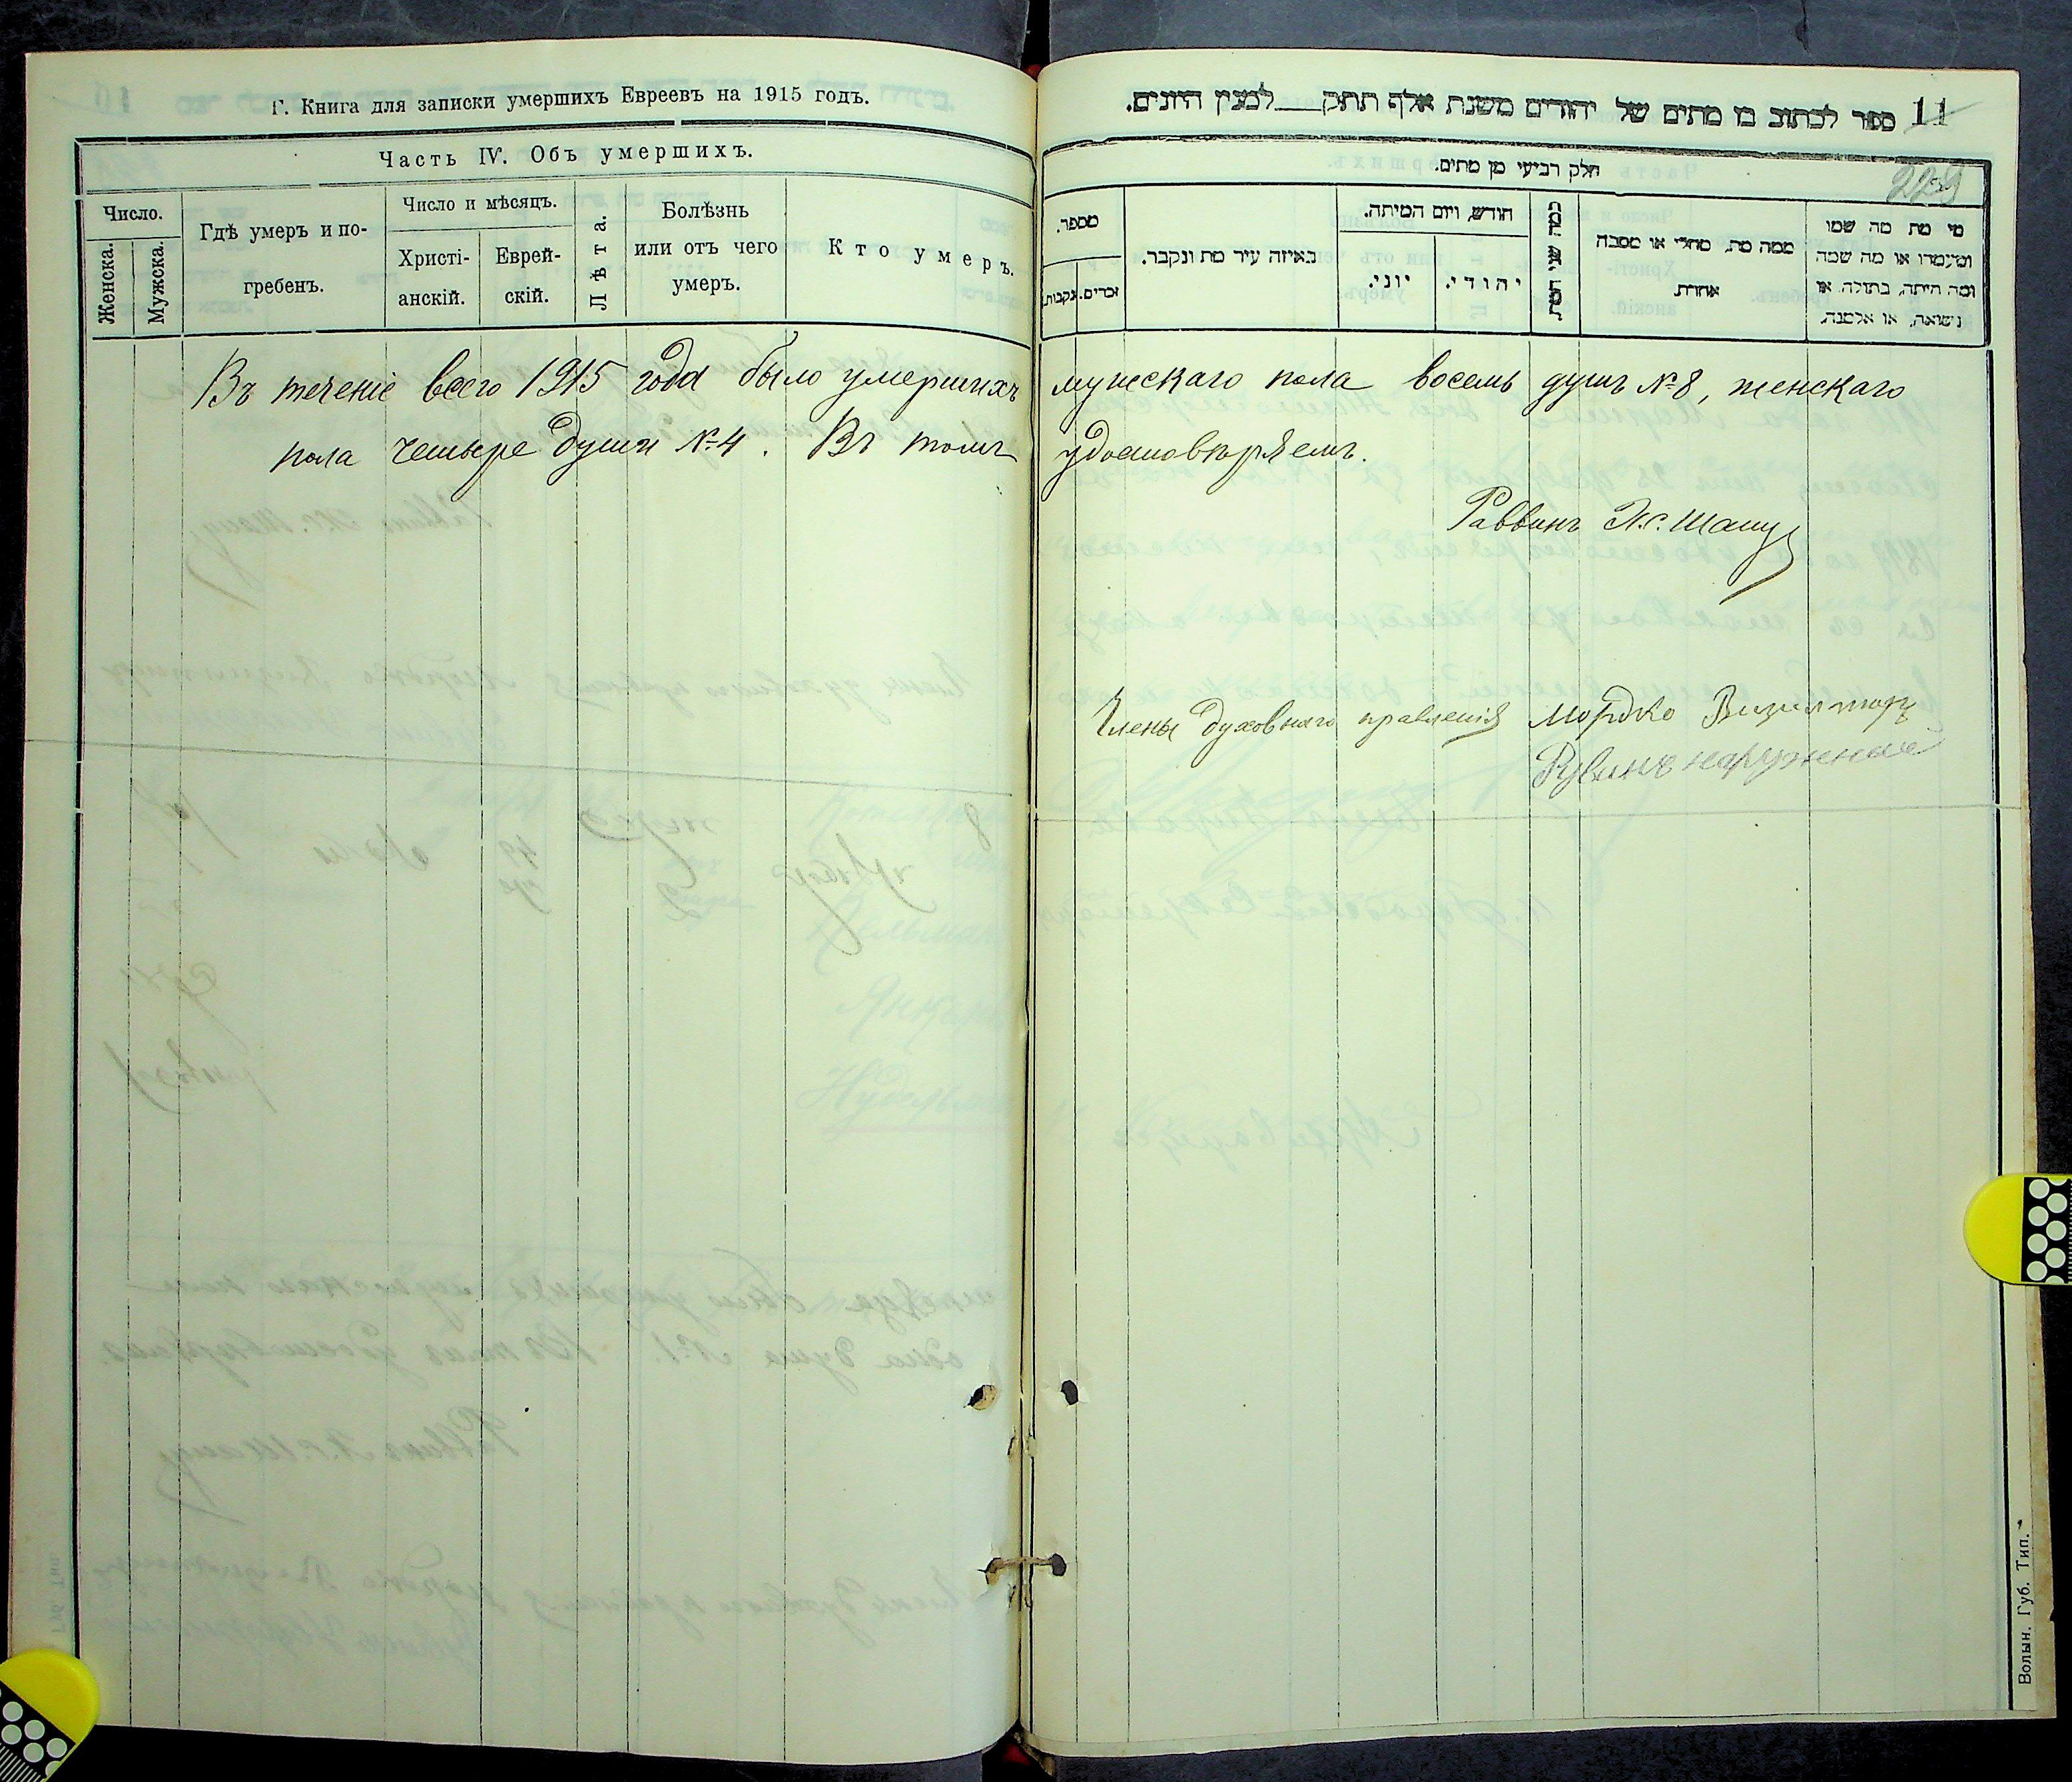 Г. Книга для записки умершихъ Евреевъ на 1915 годъ.
Часть IV. Объ умершихъ.
Число.
Женска.
Мужска.
Гдѣ умеръ и по-
гребенъ.
Число и мѣсяцъ.
Христі-
анскій.
Еврей-
скій.
Лѣта.
Болѣзнь
или отъ чего
умеръ.
Кто умеръ.
ספר לכתוב בו מתים של יהודים משנת אלף תתק___למנין היונים.
11
229
חלק רביעי מן מתים.
מספר.
זכרים.
נקבות.
באיזה עיר מת ונקבר.
חודש, ויום המיתה.
יוני.
יהודי.
כמה שני המת.
ממה מת, מחלי או מסבה
אחרת
מי מת מה שמו
ומעמדו או מה שמה
ומה היתה, בתולה, או
נישואה, או אלמנה.
Въ теченіе всего 1915 года было умершихъ мужскаго пола восемь душъ №8, женскаго
пола четыре души №4. Въ томъ удостовѣряемъ.
Раввинъ
Члены духовнаго правленія Мордко Визилтиръ
Рувинъ
Волын. Губ. Тип.